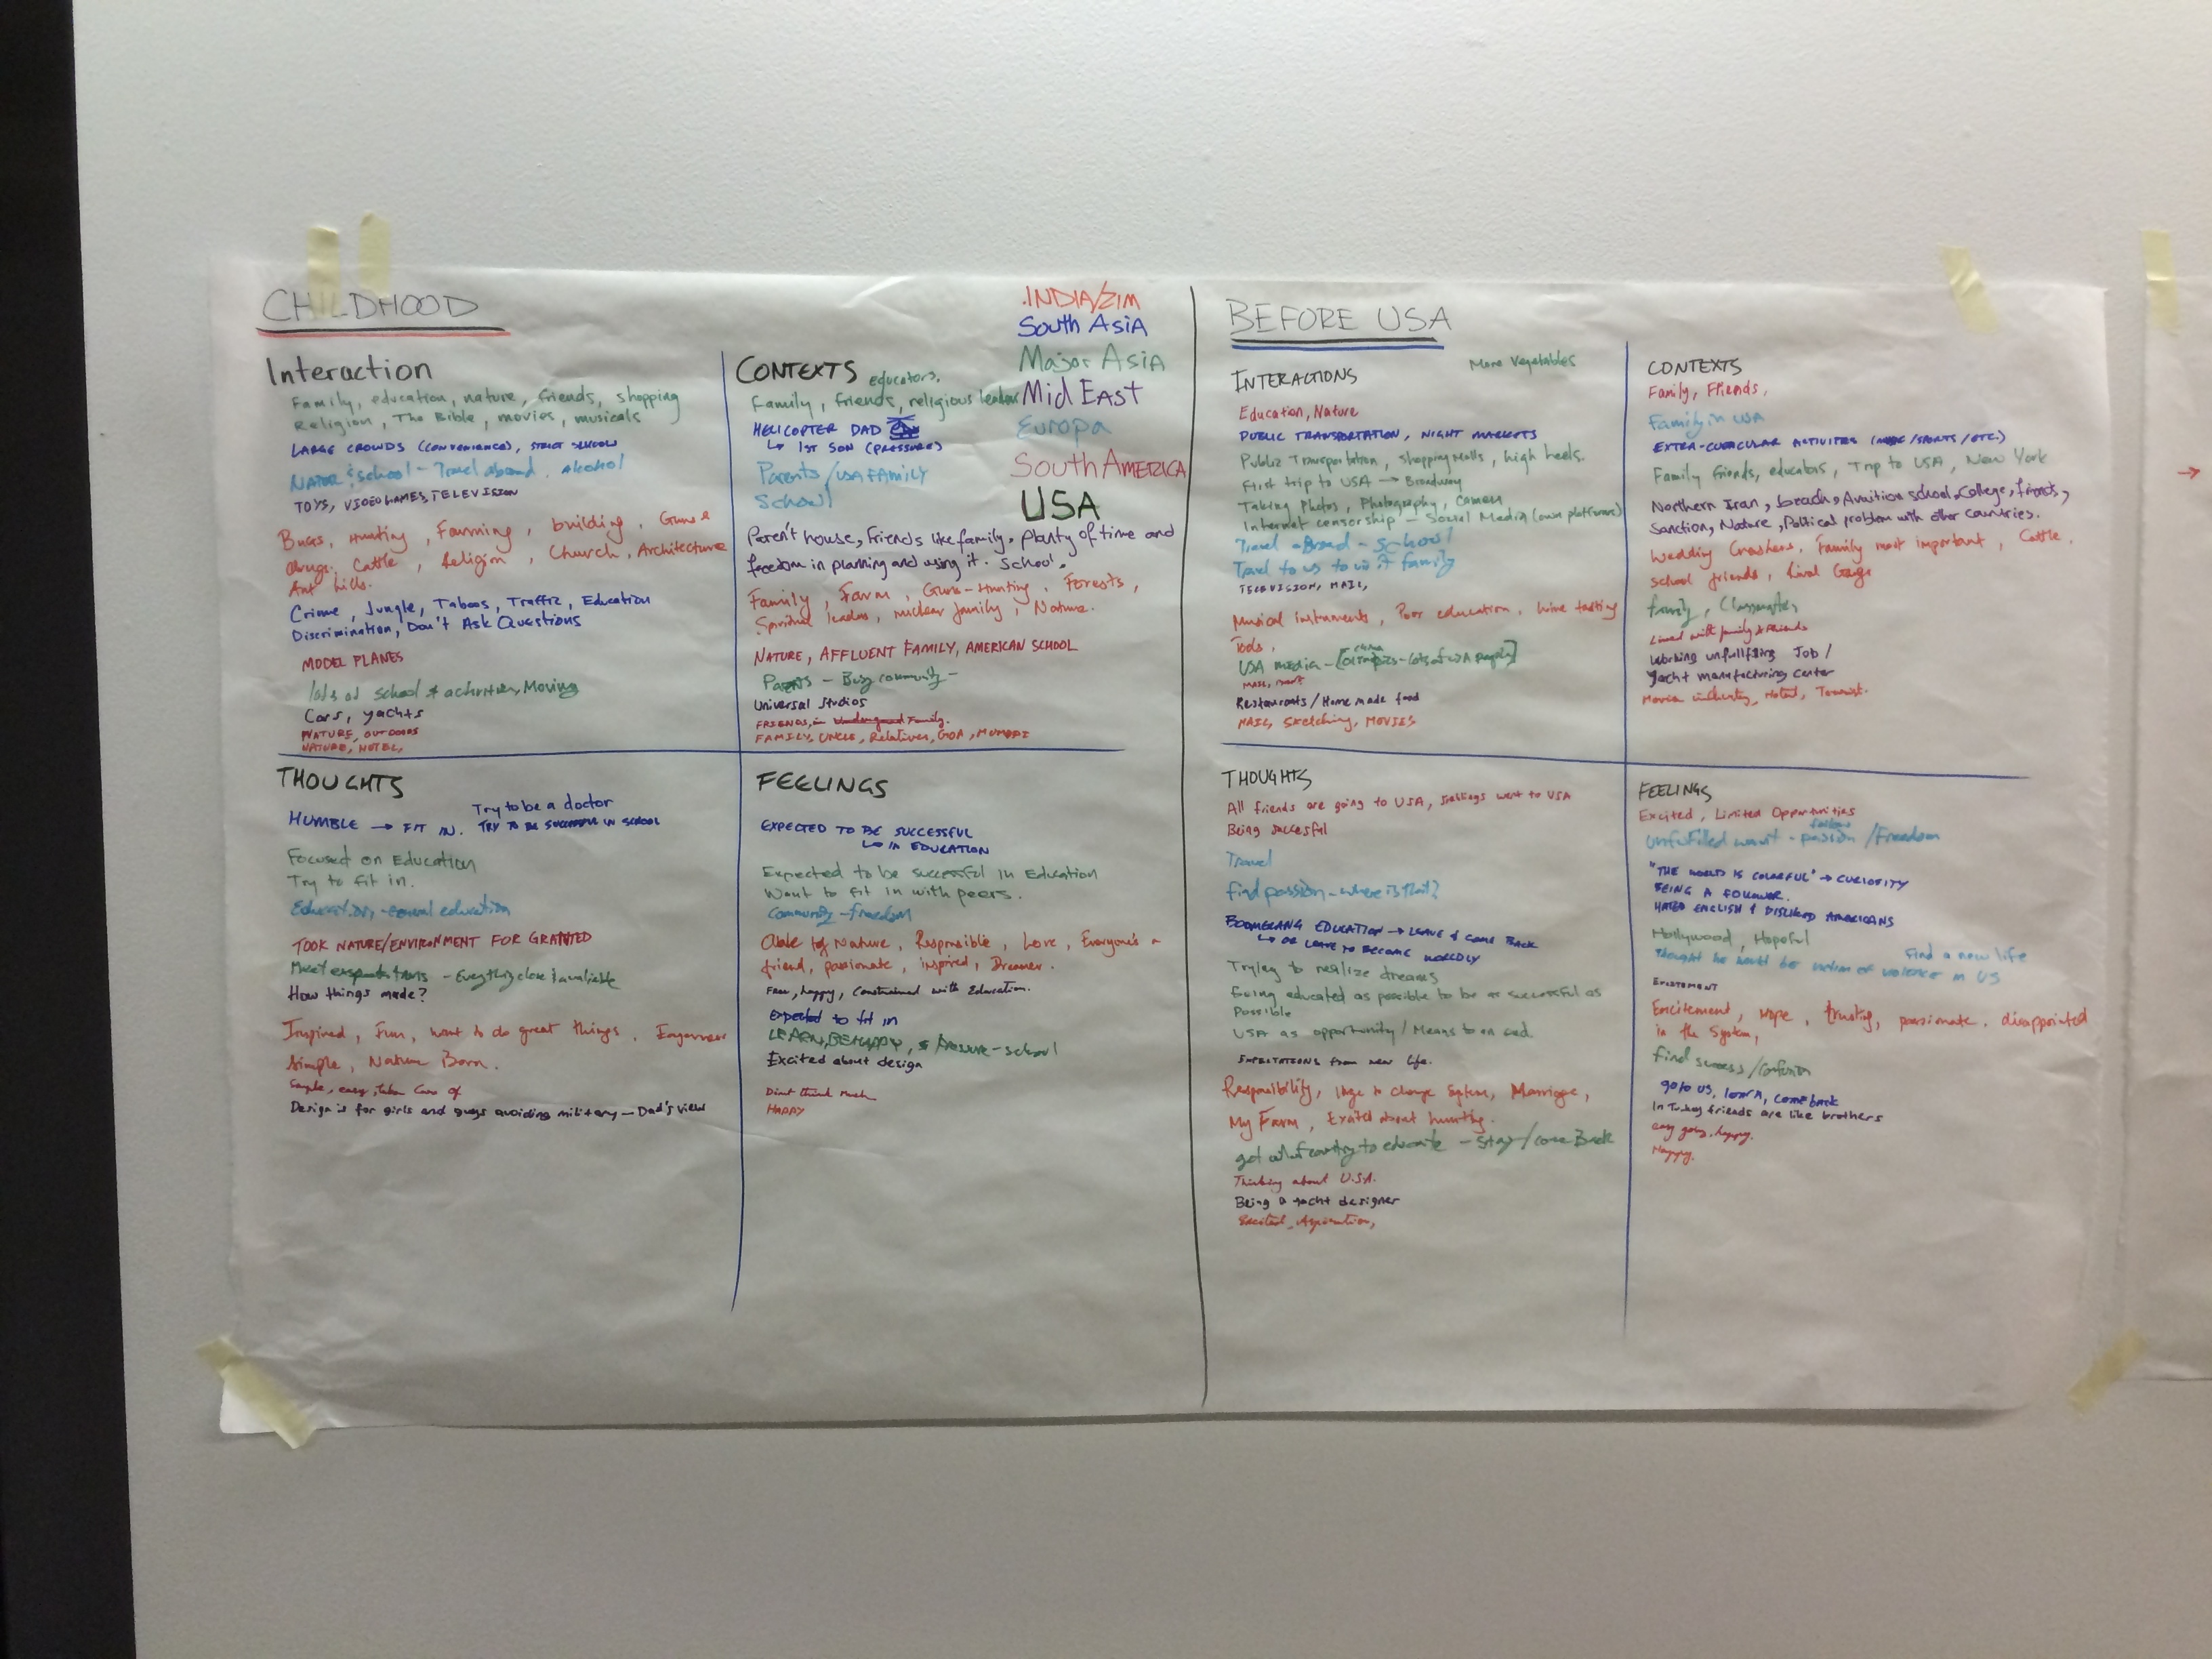 CHILDHOOD
Interaction
Family, education, nature, friends, shopping
Religion, The Bible, movies, musicals
LARGE CROWDS (CONVENIENCE), STRICT SCHOOL
NATUR & School - Travel abound, alkohol
TOYS, VIDEO GAMES, TELEVISION
Bugs, Hunting, Farming, building, Guns &
drugs, Cattle, Religion, Church, Architecture
Ant hills.
Crime, Jungle, Taboos, Traffic, Education
Discrimination, Don't Ask Questions
MODEL PLANES
lots of school & activities, Moving
Cars, yachts
NATURE, OUTDOORS
NATURE, HOTEL,
CONTEXTS
educators,
Family, friends, religious leaders
HELICOPTER DAD
↳ 1ST SON (PRESSURE)
Parents/USA FAMILY
School
Paren't house, Friends like family. Planty of time and
freedom in planning and using it. School.
Family, Farm, Guns-Hunting, Forests,
Spiritual leaders, nuclear family, Nature.
NATURE, AFFLUENT FAMILY, AMERICAN SCHOOL
Parents - Busy community -
Universal Studios
FRIENDS, Family.
FAMILY, UNCLE, Relatives, GOA, MUMBAI
.INDIA/ZIM
South ASIA
Major ASIA
Mid EAST
Europa
South AMERICA
USA
THOUGHTS
HUMBLE → FIT IN.
Try to be a doctor
TRY TO BE SUCCESSFUL IN SCHOOL
Focused on Education
Try to fit in.
Education, - education
TOOK NATURE/ENVIRONMENT FOR GRANTED
Meet - Everything close & available
How things made?
Inspired, Fun, want to do great things,
Simple, Nature Born.
Simple, easy, taken Care of
Design is for girls and guys avoiding military - Dad's view
FEELINGS
EXPECTED TO BE SUCCESSFUL
↳ IN EDUCATION
Expected to be successful in Education
Want to fit in with peers.
Community - freedom
Nature, Responsible, Love, Everyone's
friend, passionate, inspired, Dreamer.
Free, happy, Constrained with Education.
Expected to fit in
LEARN, BE HAPPY, school
Excited about design
Dint think much
HAPPY
BEFORE USA
INTERACTIONS
More Vegetables
Education, Nature
PUBLIC TRANSPORTATION, NIGHT MARKETS
Public Transportation, Shopping Malls, high heels.
First trip to USA → Broadway
Taking Photos, Photography, Camera
Internet censorship - Social Media (own platforms)
Travel - Broad - School
Travel to us to visit family
TELEVISION, MAIL,
Musical instruments, Poor education, wine tasting
Tools,
USA media - [Olimpics - lots of USA people]
china
Restaurants / Home made food
MAIL, Sketching, MOVIES
CONTEXTS
Family, Friends,
Family in USA
EXTRA-CURRICULAR ACTIVITES (MUSIC/SPORTS/ETC.)
Family friends, educators, Trip to USA, New York
Northern Iran, beach, Aviation school, College, friends,
Sanction, Nature, Political problem with other countries.
Wedding Crashers, Family most important, Cattle,
school friends, Rival Gangs
family, Classmates
Lived with family & Friends
Working unfullfiling Job /
yacht manufacturing center
Movie industry, Hotel, Tourist.
THOUGHTS
All friends are going to USA, siblings went to USA
Being succesful
Travel
find passion - where is that?
BOOMERANG EDUCATION → LEAVE & COME BACK
↳ OR LEAVE TO BECOME WORLDLY
Trying to realize dreams
Being educated as possible to be as successful as
Possible
USA as opportunity / Means to an end.
EXPECTATIONS from new life.
Responsibility, Urge to change System, Marriage,
My Farm, Exited about hunting.
country to educate - stay/come Back
Thinking about U.S.A.
Being a yacht designer
Excited, Aspiration,
FEELINGS
Excited, Limited Opportunities
follow
Unfulfilled want - passion / Freedom
"THE WORLD IS COLORFUL" → CURIOSITY
BEING A FOLLOWER.
HATED ENGLISH & DISLIKED AMERICANS
Hollywood, Hopeful
Find a new life
thought he would be victim of violence in US
EXCITEMENT
Excitement, Hope, trusting, passionate, disappointed
in the System,
Find success/Confusion
go to US, learn, come back
In Turkey friends are like brothers
easy going, happy.
Happy.
→